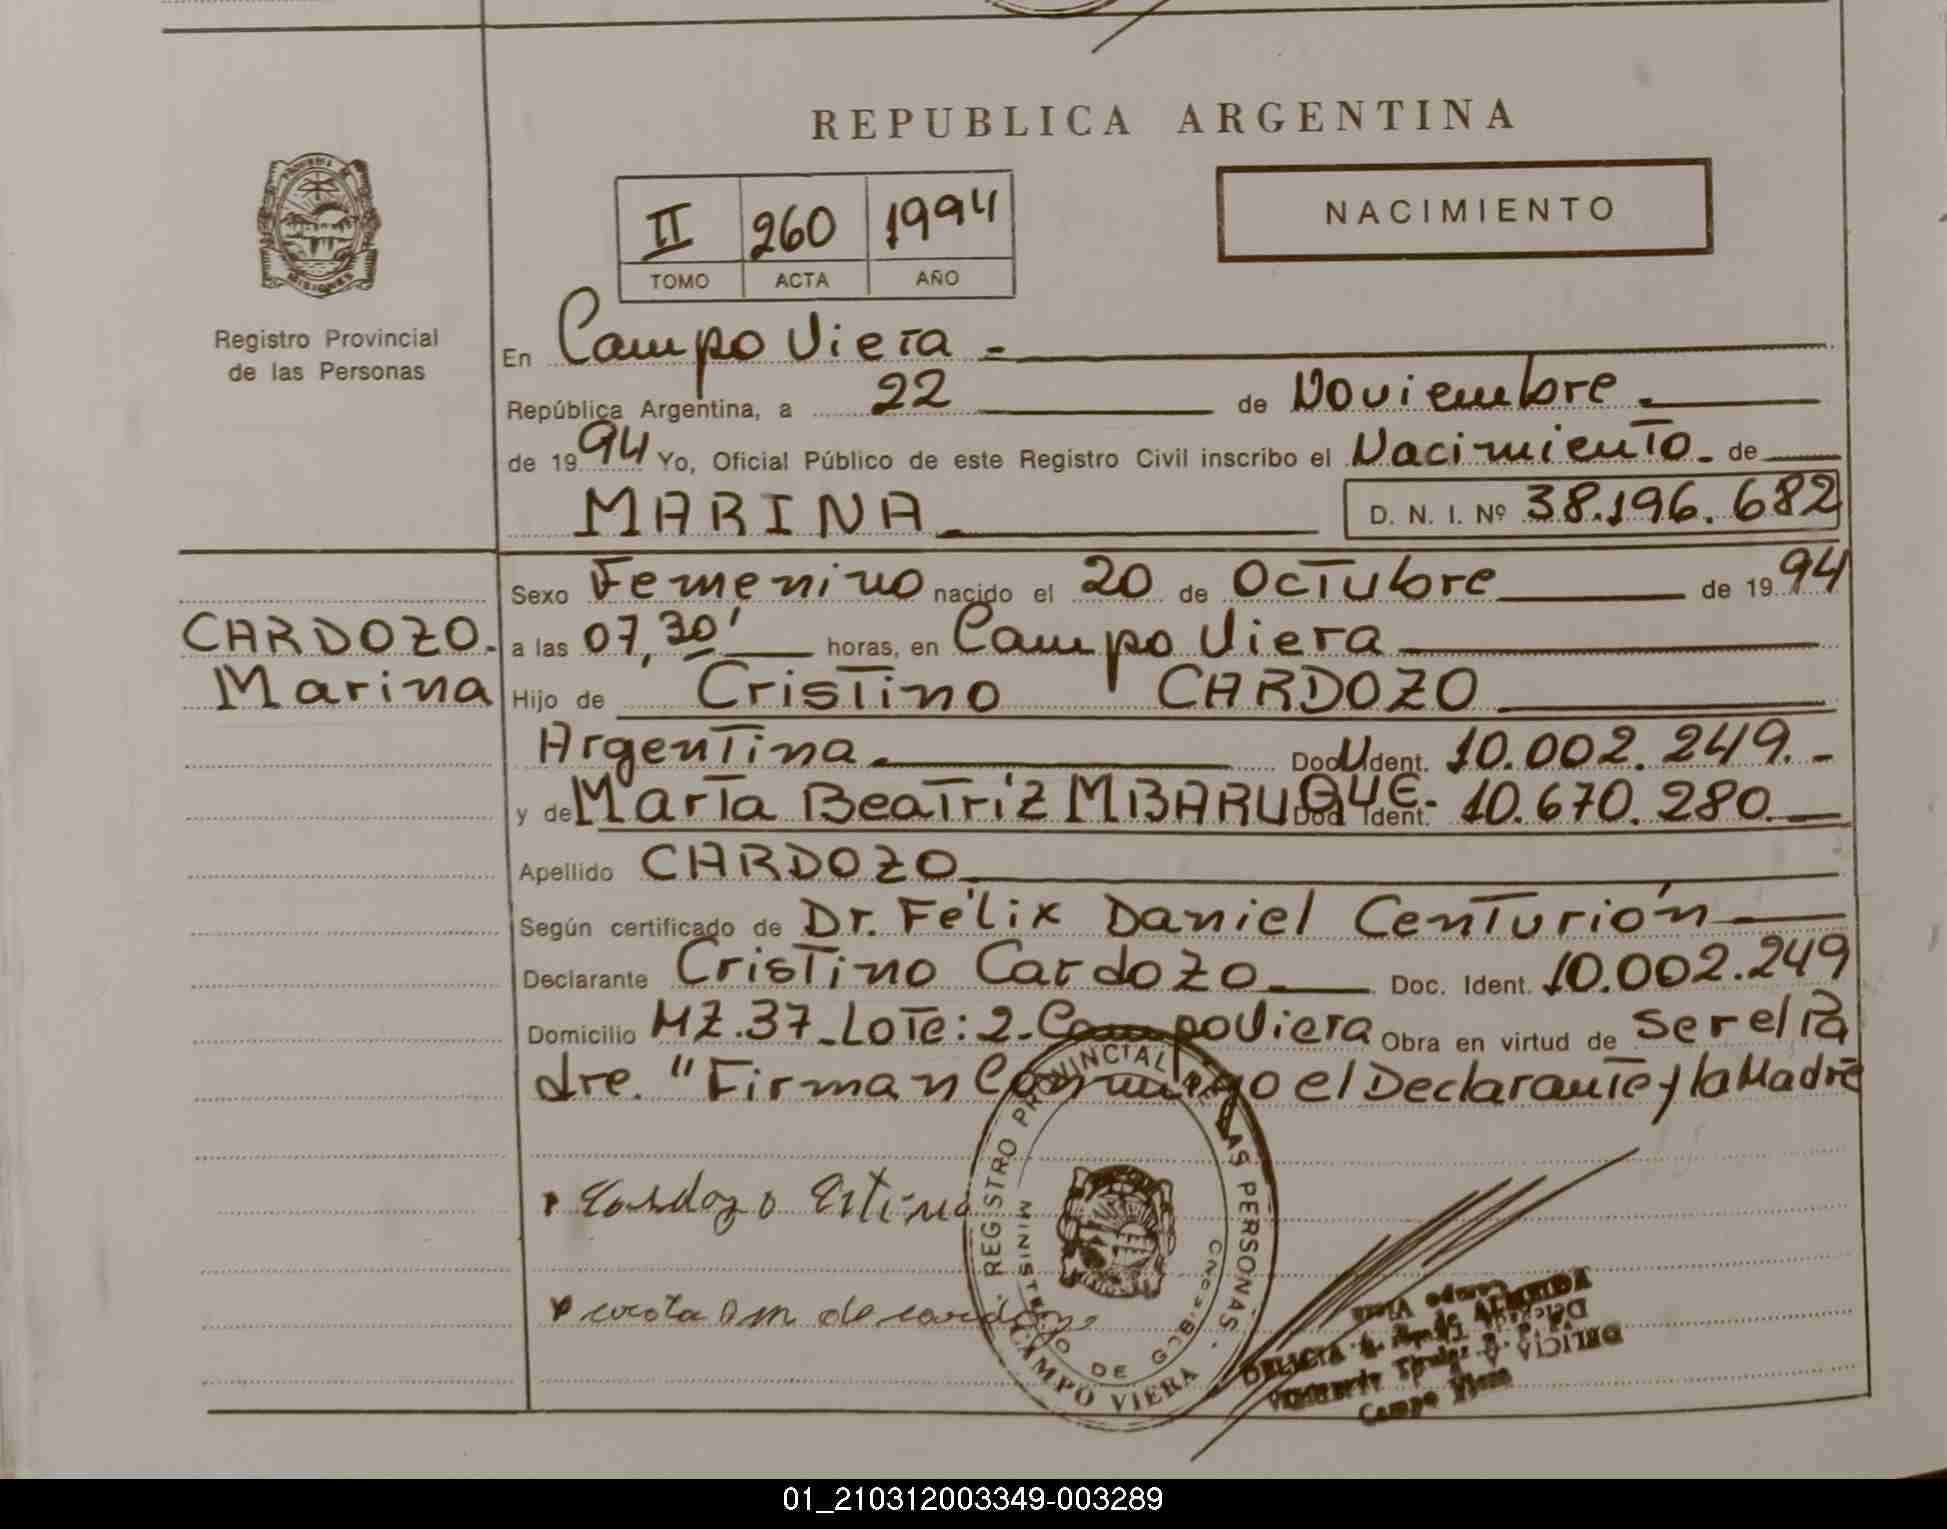 REPUBLICA ARGENTINA
NACIMIENTO
II 260 1994
TOMO ACTA AÑO
Registro Provincial
de las Personas
En Campo Viera -
República Argentina, a 22 de Noviembre.
de 1994 Yo, Oficial Público de este Registro Civil inscribo el Nacimiento. de
MARINA. D. N. I. Nº 38.196.682
CARDOZO.
Marina
Sexo Femenino nacido el 20 de Octubre de 1994
a las 07,30' horas, en Campo Viera
Hijo de Cristino CARDOZO
Argentina. Doc. Ident. 10.002.249.-
y de Marta Beatriz MBARUQUE. Doc. Ident. 10.670.280.
Apellido CARDOZO
Según certificado de Dr. Félix Daniel Centurión
Declarante Cristino Cardozo Doc. Ident. 10.002.249
Domicilio MZ.37-Lote:2-Campo Viera Obra en virtud de ser el Pa
dre. "Firman Conmigo el Declarante y la Madre
Cardozo
de
REGISTRO PROVINCIAL DE LAS PERSONAS.
MINISTERIO DE GOBIERNO
CAMPO VIERA
DELICIA
Campo Viera
01_210312003349-003289